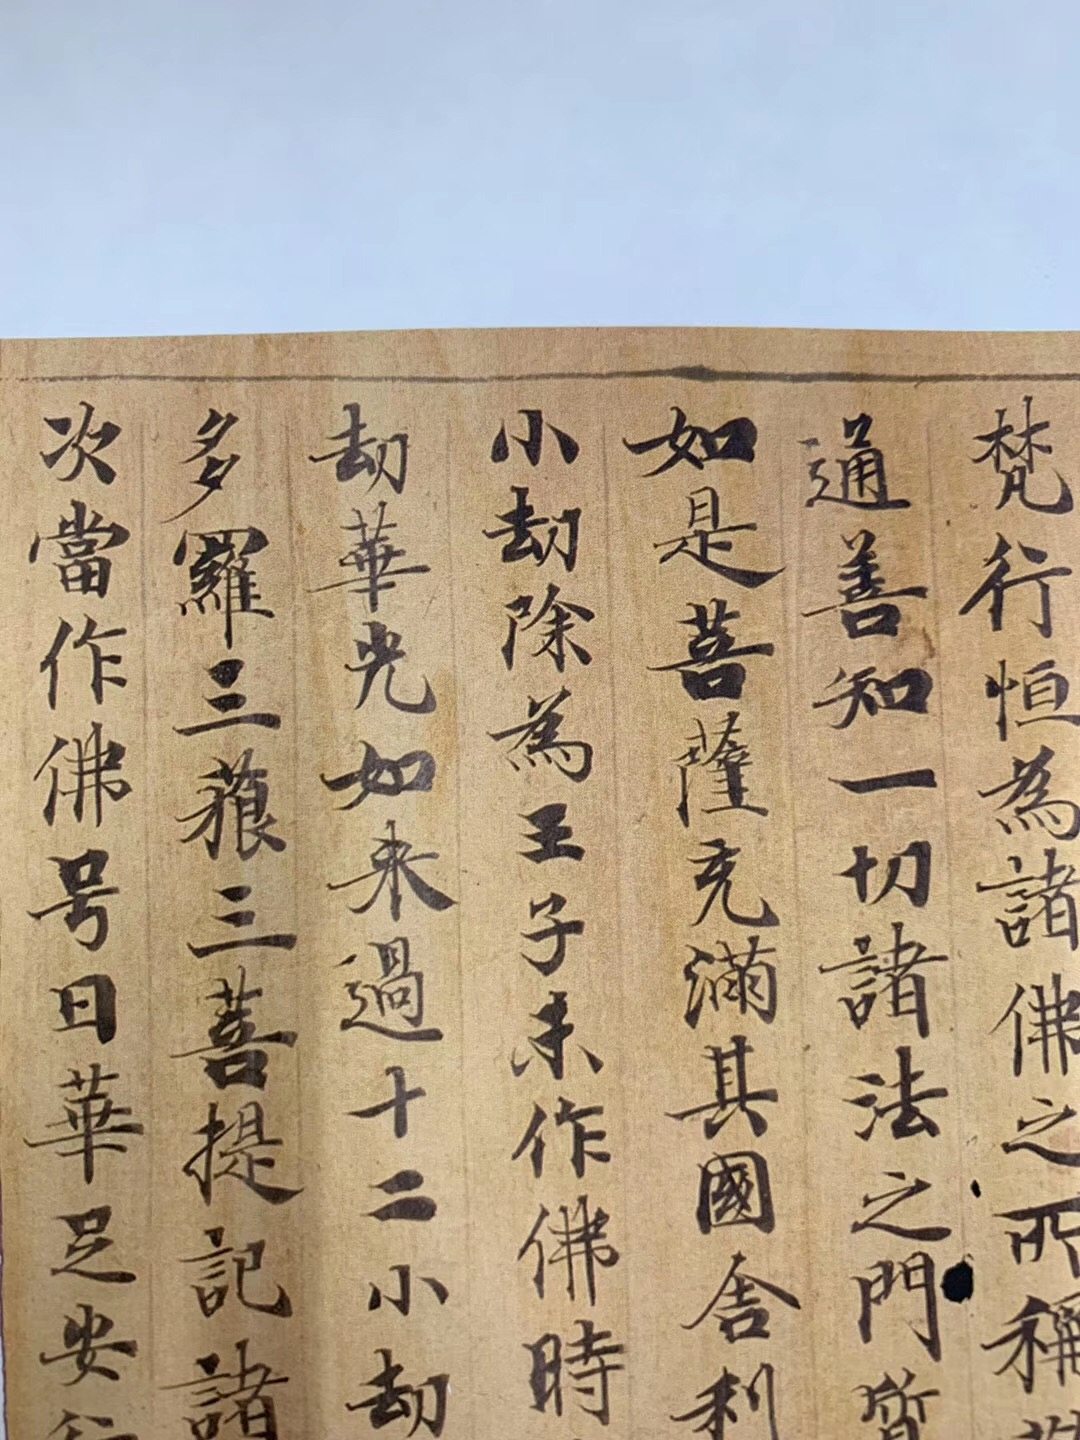 梵行恒為諸佛之所稱
通善知一切諸法之門質
如是菩薩充滿其國舎利
小劫除為王子未作佛時
劫華光如来過十二小劫
多羅三藐三菩提記諸
次當作佛号曰華足安行